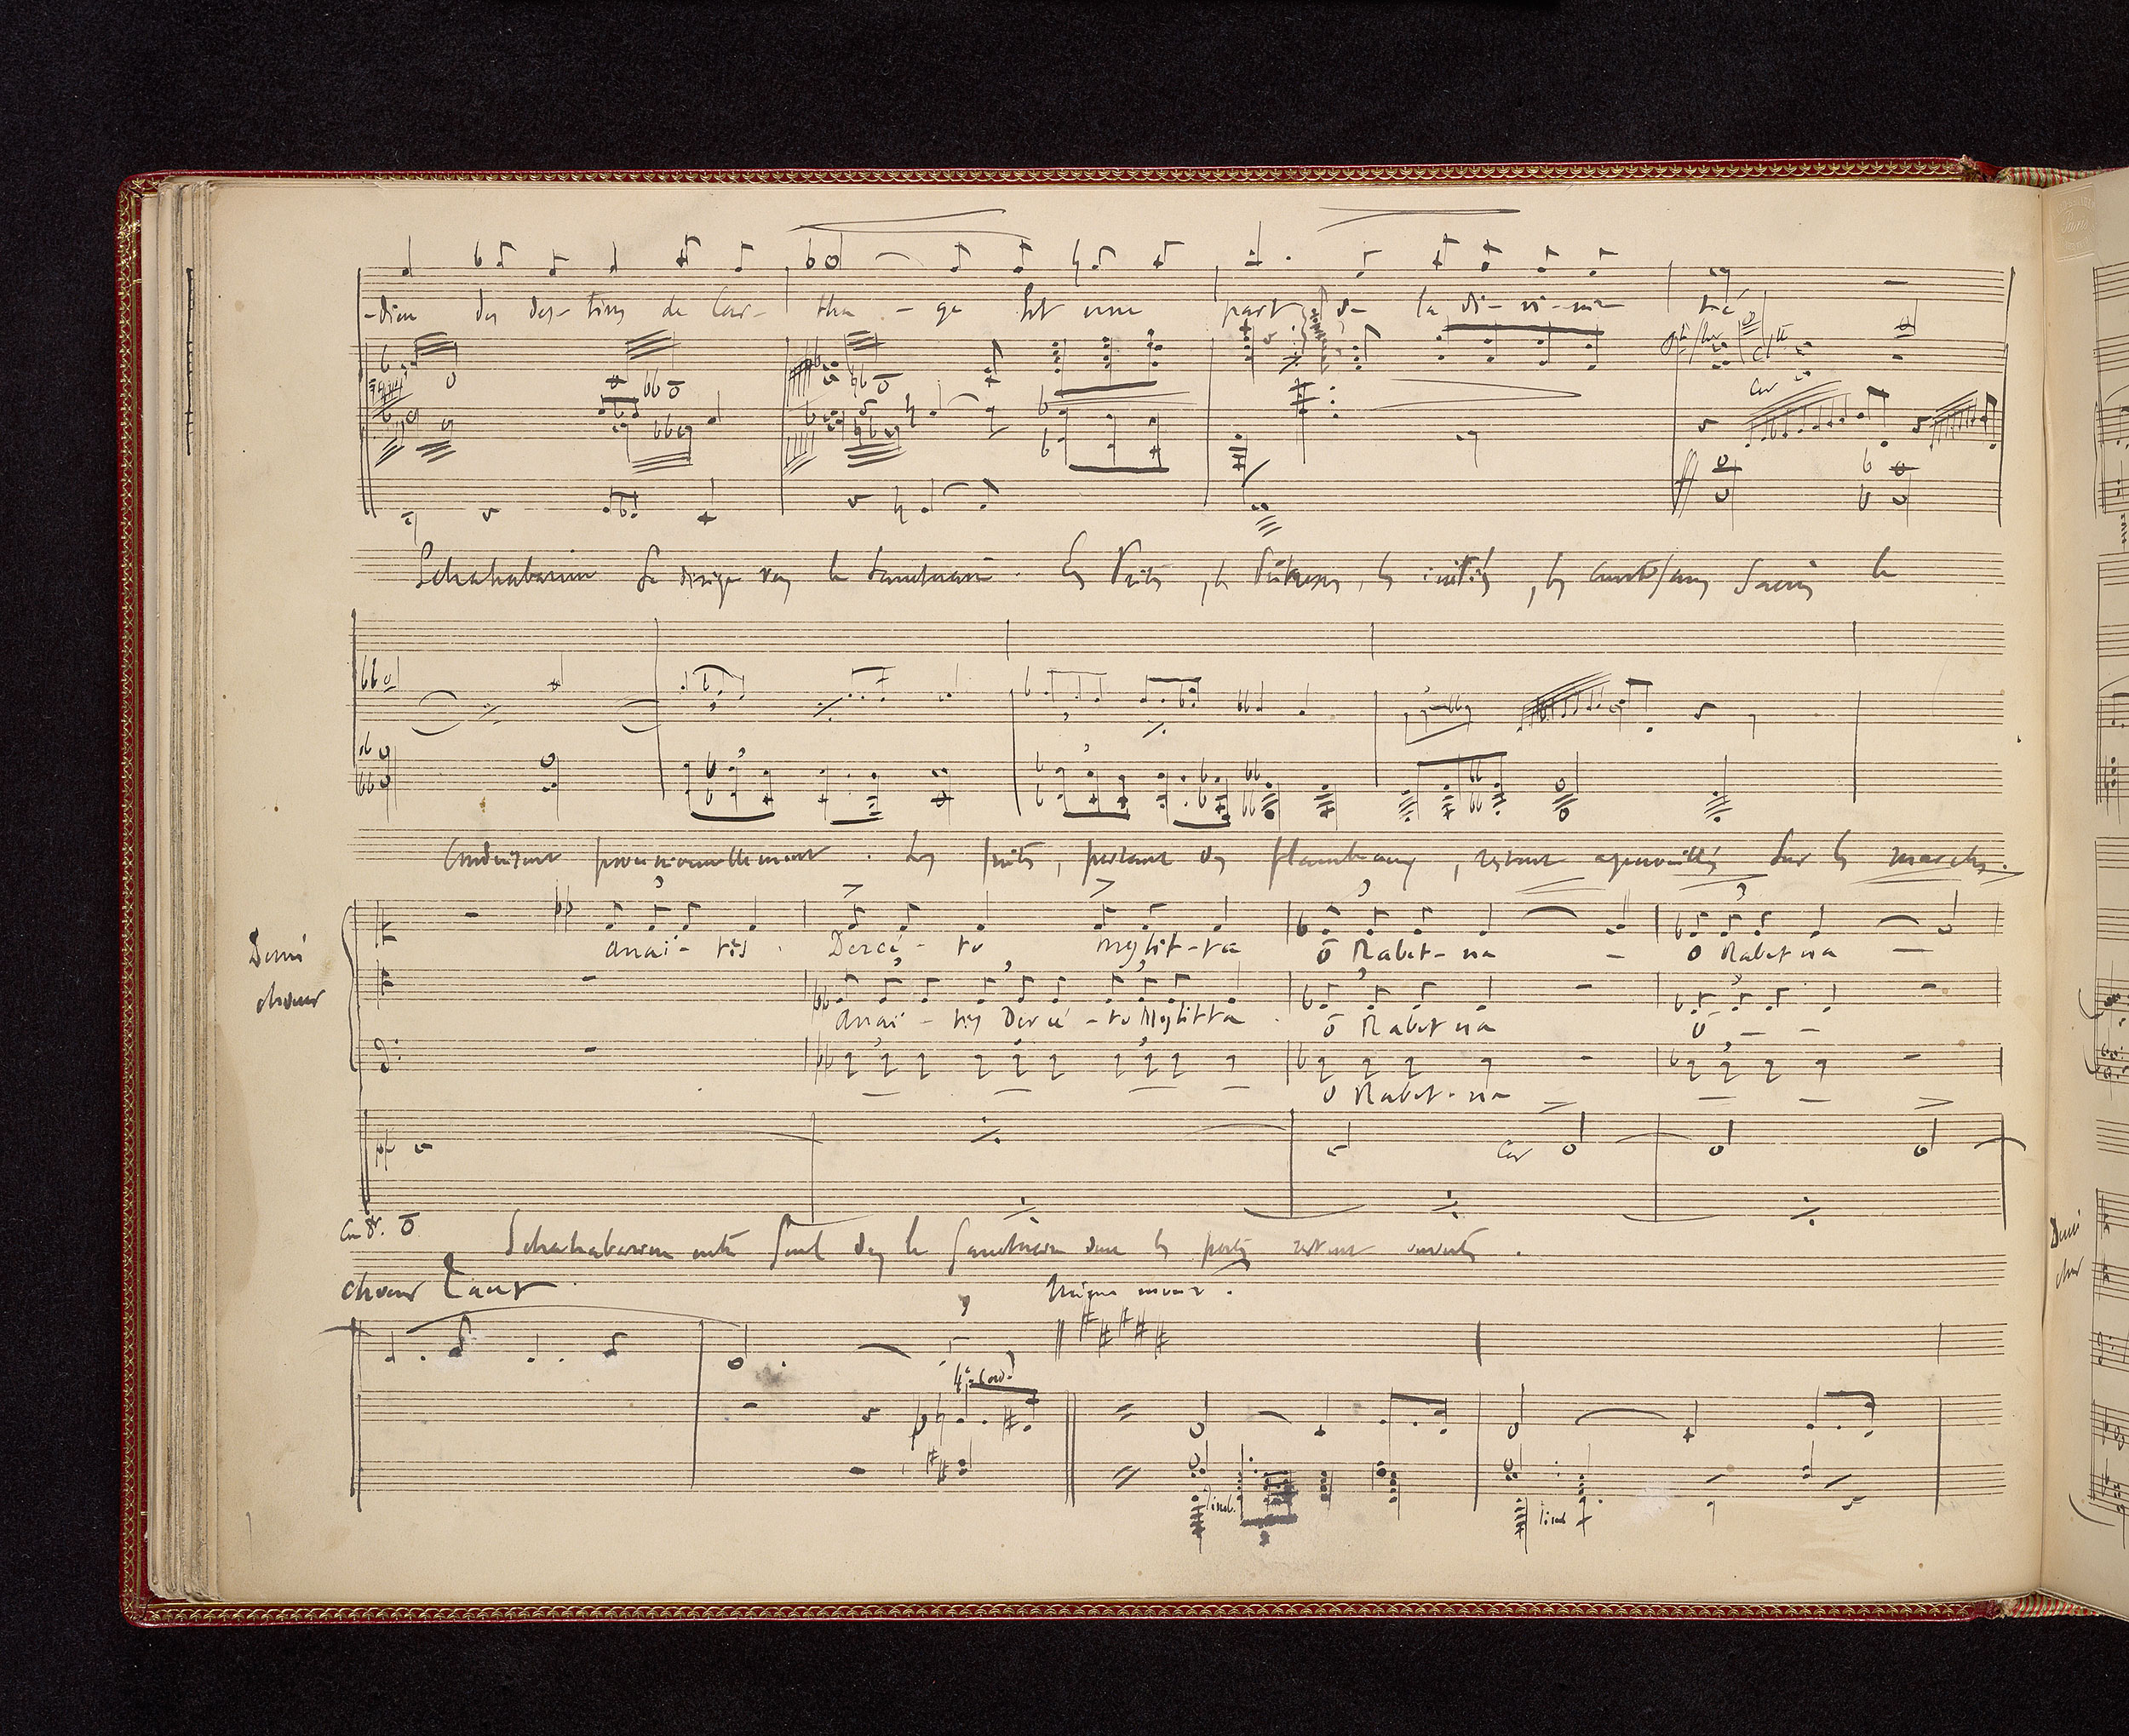 -dien des des- tins de Car- tha - ge Est une part de la di- vi- ni- té
Cor
ff
Schahabarim se dirige vers le sanctuaire. Les Prêtres, les Prêtresses, les initiés, les Courtisanes Sacrées le
Conduisent processionnellement. Les prêtres, portant des flambeaux, restent agenouillés sur les marches.
Demi
chœur
anaï - tis . Derce - to Mylit-ta ō Rabet-na - o Rabetna
anaï - tis Dercé - to Mylitta . ō Rabet na ō - -
o Rabet-na
pp
Cor
Schahabarim entre seul dans le sanctuaire dont les portes restent ouvertes.
chœur
4e Cord.
timb.
timb
Demi
chœur